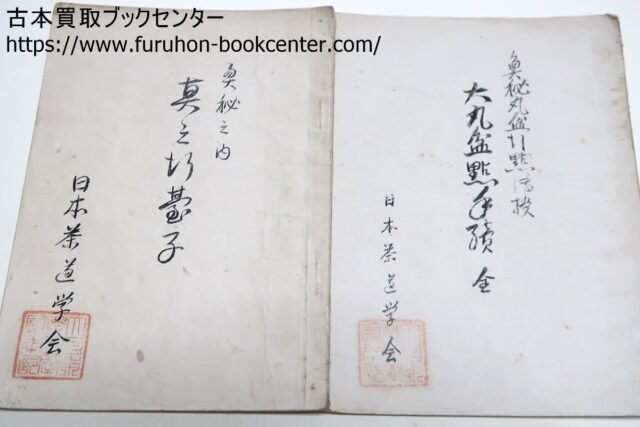 古本買取ブックセンター
https://www.furuhon-bookcenter.com/
奥秘之内
真之行臺子
日本茶道学会
奥秘丸盆行點
大丸盆點手續 全
日本茶道学会